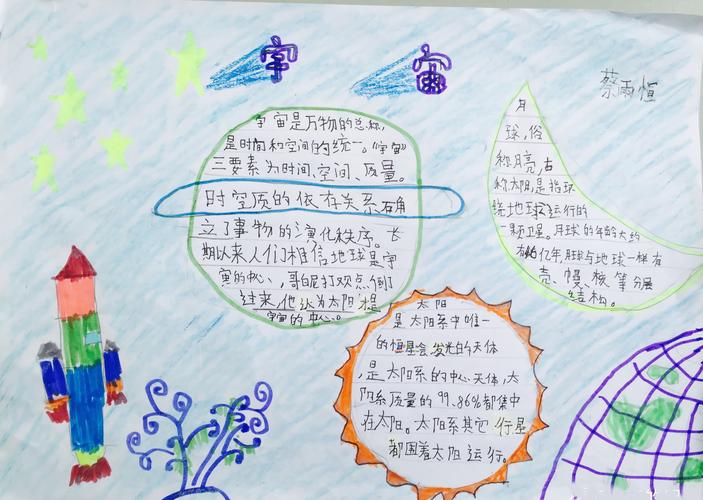 宇 宙
蔡雨恒
宇宙是万物的总称,
是时间和空间的统一。《宇宙》
三要素为时间、空间、质量。
时空质的依存关系确
立了事物的演化秩序。长
期以来人们相信地球是宇
宙的中心,哥白尼打观点倒
过来,他认为太阳才是
宇宙的中心。
月
球,俗
称月亮,古
称太阳,是指环
绕地球运行的
一颗卫星。月球的年龄大约
有46亿年,月球与地球一样有
壳、幔、核等分层
结构。
太阳
是太阳系中唯一
的恒星会发光的天体
,是太阳系的中心天体,太
阳系质量的99.86%都集中
在太阳。太阳系其它行星
都围着太阳运行。